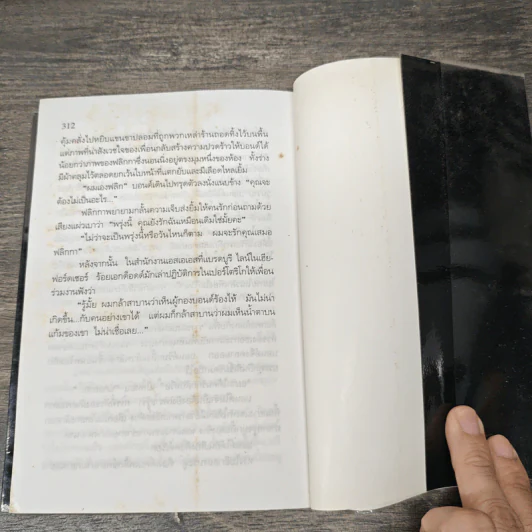 312
คุ้มคลั่งไปหยิบแขนขาปลอมที่ถูกพวกเหล่าร้ายถอดทิ้งไว้บนพื้น
แต่ภาพที่น่าสังเวชใจของเพื่อนกลับสร้างความปวดร้าวให้บอนด์ได้
น้อยกว่าภาพของฟลิกกาซึ่งนอนนิ่งอยู่ตรงมุมหนึ่งของห้อง ทั้งร่าง
มีผ้าคลุมไว้ตลอดยกเว้นใบหน้าที่แตกยับและมีเลือดไหลเยิ้ม
“ผมเองฟลิก” บอนด์เดินไปทรุดตัวลงนั่งแนบข้าง “คุณจะ
ต้องไม่เป็นอะไร...”
ฟลิกกาพยายามกลั้นความเจ็บส่งยิ้มให้คนรักก่อนถามด้วย
เสียงแผ่วเบาว่า “พรุ่งนี้ คุณยังรักฉันเหมือนเดิมใช่มั้ยคะ”
“ไม่ว่าจะเป็นพรุ่งนี้หรือวันไหนก็ตาม ผมจะรักคุณเสมอ
ฟลิกกา”
หลังจากนั้น ในสำนักงานเอสเอเอสที่แบรดบูรี ไลน์ในเฮีย-
ฟอร์ดเชอร์ ร้อยเอกด็อดด์มักเล่าปฏิบัติการในเปอร์โตริโกให้เพื่อน
ร่วมงานฟังว่า
“รู้มั้ย ผมกล้าสาบานว่าเห็นผู้กองบอนด์ร้องไห้ มันไม่น่า
เกิดขึ้น...กับคนอย่างเขาได้ แต่ผมก็กล้าสาบานว่าผมเห็นน้ำตาบน
แก้มของเขา ไม่น่าเชื่อเลย...”